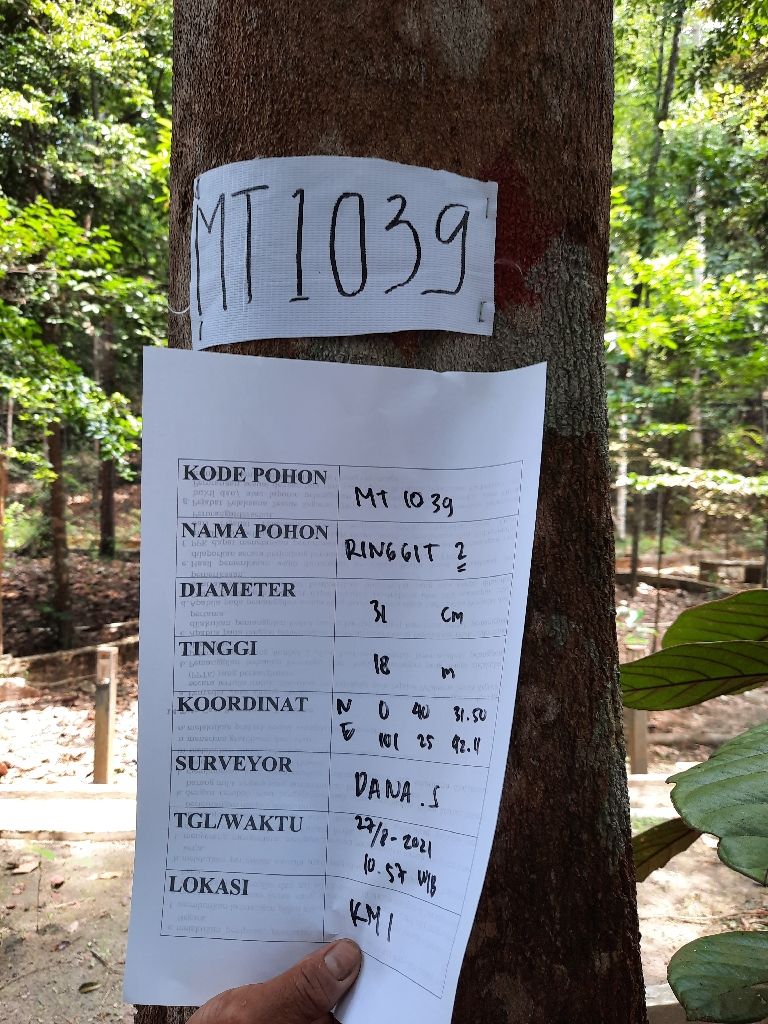 MT 1039
KODE POHON MT 1039
NAMA POHON RINGGIT 2
DIAMETER 31 cm
TINGGI 18 m
KOORDINAT N 0 40 31.50
E 101 25 42.11
SURVEYOR DANA.S
TGL/WAKTU 27/8-2021
10.57 WIB
LOKASI KM 1